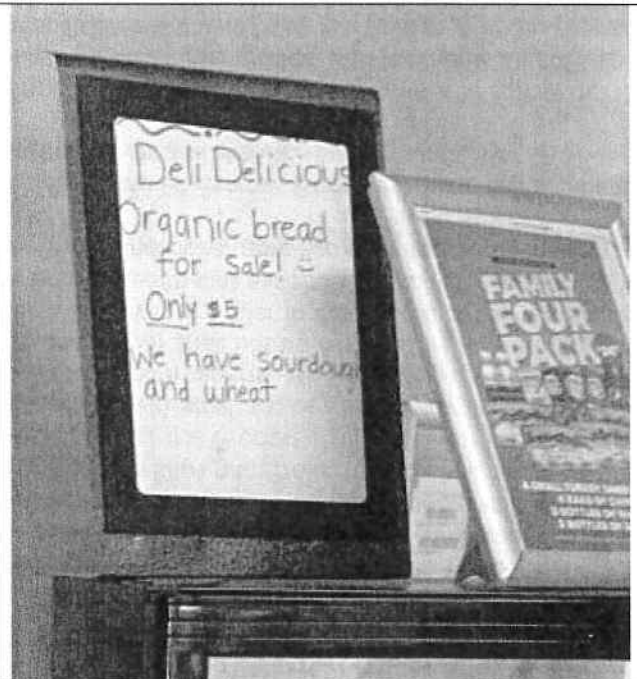 Deli Delicious
Organic bread
for Sale!
Only $5
We have sourdough
and wheat
FAMILY
FOUR
PACK
A SMALL TURKEY